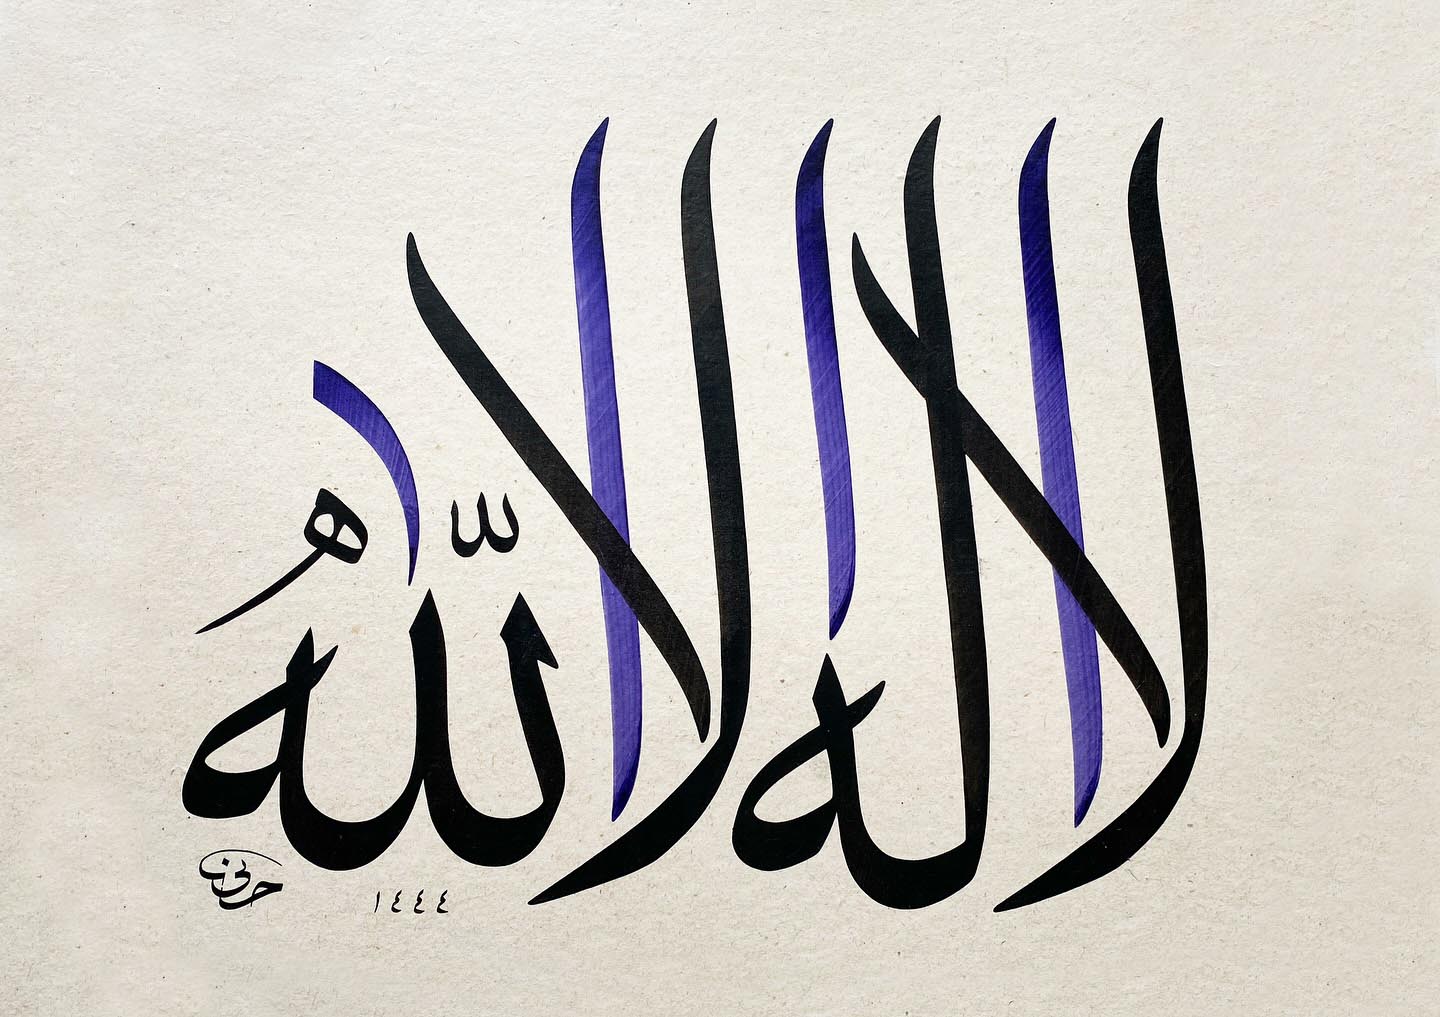 لا إله إلا الله
١٤٤٤